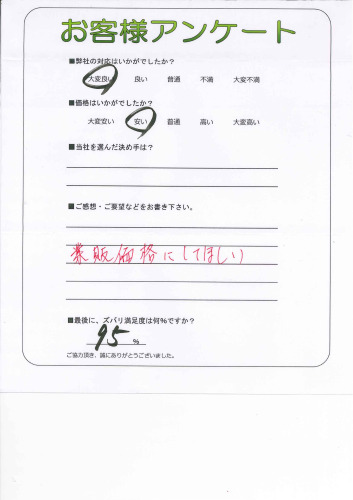 お客様アンケート
■弊社の対応はいかがでしたか？
大変良い 良い 普通 不満 大変不満
■価格はいかがでしたか？
大変安い 安い 普通 高い 大変高い
■当社を選んだ決め手は？
■ご感想・ご要望などをお書き下さい。
業販価格にしてほしい
■最後に、ズバリ満足度は何%ですか？
95 %
ご協力頂き、誠にありがとうございました。